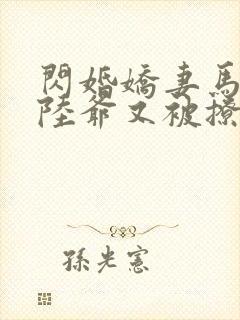 閃婚嬌妻馬
陸爺又被撩
孫光憲